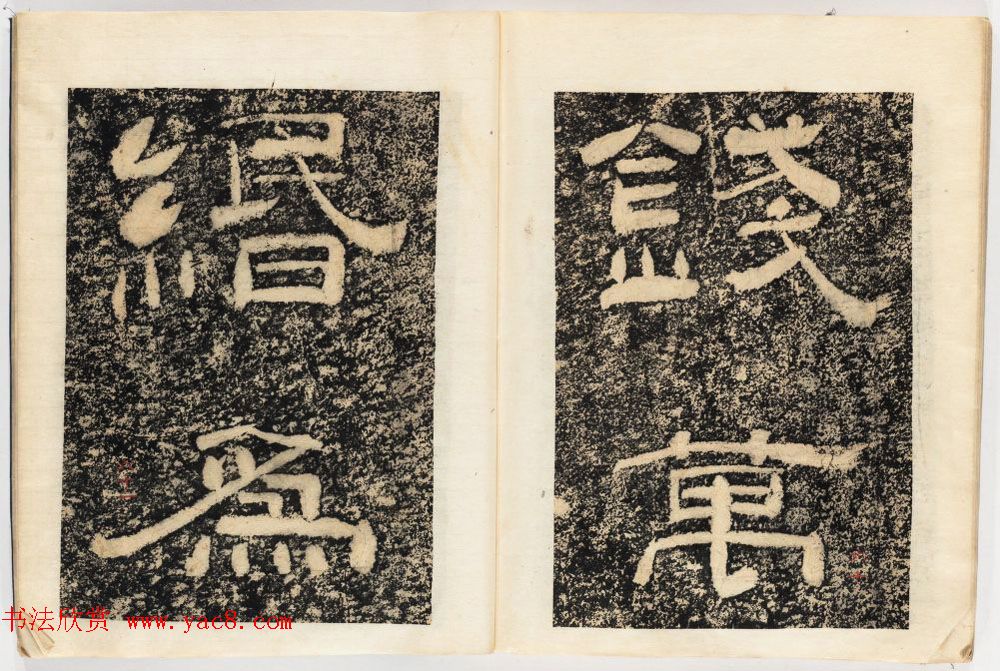 錢萬
緡為
书法欣赏 www.yac8.com